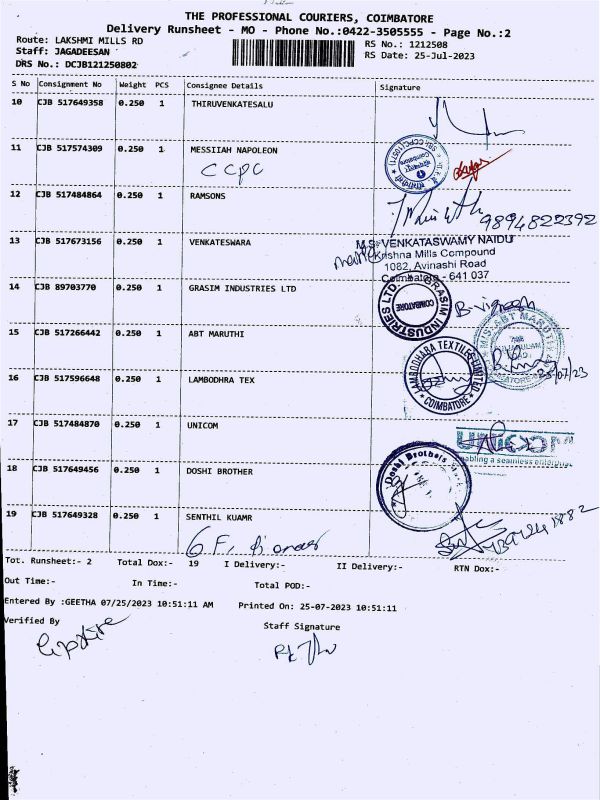 THE PROFESSIONAL COURIERS, COIMBATORE
Delivery Runsheet - MO - Phone No.:0422-3505555 - Page No.:2
Route: LAKSHMI MILLS RD
Staff: JAGADEESAN
DRS No.: DCJB121250802
RS No.: 1212508
RS Date: 25-Jul-2023
S No Consignment No Weight PCS Consignee Details Signature
10 CJB 517649358 0.250 1 THIRUVENKATESALU
11 CJB 517574309 0.250 1 MESSIIAH NAPOLEON
CCPC
12 CJB 517484864 0.250 1 RAMSONS
9894822392
13 CJB 517673156 0.250 1 VENKATESWARA
M.S. VENKATASWAMY NAIDU
Krishna Mills Compound
1082, Avinashi Road
Coimbatore - 641 037
14 CJB 89703770 0.250 1 GRASIM INDUSTRIES LTD
GRASIM INDUSTRIES LTD
COIMBATORE
B-vignesh
15 CJB 517266442 0.250 1 ABT MARUTHI
25/07/23
16 CJB 517596648 0.250 1 LAMBODHRA TEX
LAMBODHARA TEXTILES LIMITED
COIMBATORE
17 CJB 517484870 0.250 1 UNICOM
UNICOM
enabling a seamless enterprise
18 CJB 517649456 0.250 1 DOSHI BROTHER
Doshi Brothers
19 CJB 517649328 0.250 1 SENTHIL KUAMR
Tot. Runsheet:- 2 Total Dox:- 19 I Delivery:- II Delivery:- RTN Dox:-
Out Time:- In Time:- Total POD:-
Entered By :GEETHA 07/25/2023 10:51:11 AM Printed On: 25-07-2023 10:51:11
Verified By Staff Signature